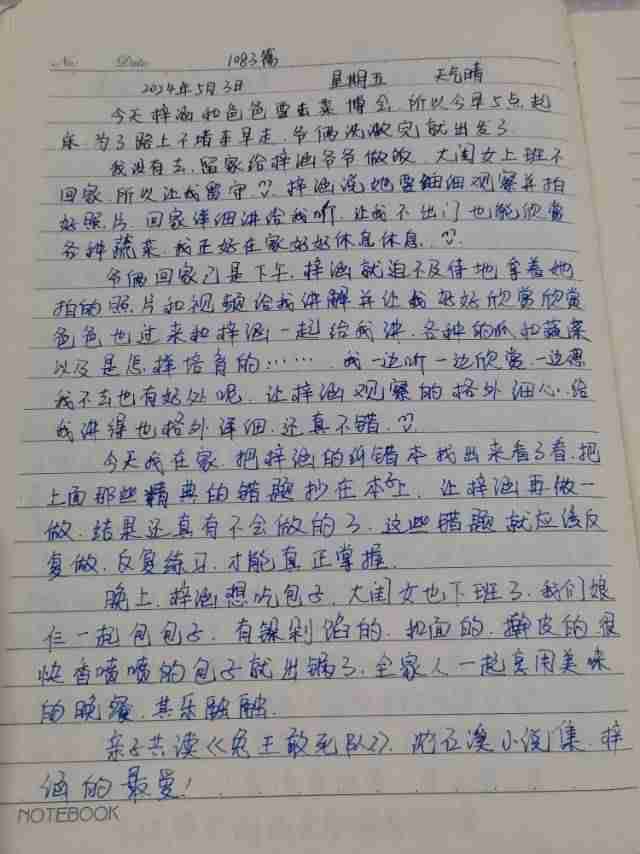 No. Date 1083篇
2024年5月3日 星期五 天气晴
今天梓涵和爸爸要去菜博会,所以今早5点起
床,为了路上不堵车早走,爷俩洗漱完就出发了.
我没有去,留家给梓涵爷爷做饭,大闺女上班不
回家,所以让我留守.梓涵说她要细细观察并拍
好照片,回家详细讲给我听,让我不出门也能欣赏
各种蔬菜,我正好在家好好休息休息.
爷俩回家已是下午,梓涵就迫不及待地拿着她
拍的照片和视频给我讲解并让我好好欣赏欣赏
爸爸也过来和梓涵一起给我讲.各种的瓜和蔬菜
以及是怎样培育的……,我一边听一边欣赏,一边想
我不去也有好处呢,让梓涵观察的格外细心.给
我讲得也格外详细.还真不错.
今天我在家,把梓涵的纠错本找出来看了看.把
上面那些精典的错题抄在本子上,让梓涵再做一
做.结果还真有不会做的了.这些错题就应该反
复做.反复练习.才能真正掌握.
晚上,梓涵想吃包子,大闺女也下班了.我们娘
仨一起包包子,有剁馅的.和面的.擀皮的很
快香喷喷的包子就出锅了,全家人一起享用美味
的晚餐.其乐融融.
亲子共读《兔王敢死队》.沈石溪小说集,梓
涵的最爱!
NOTEBOOK